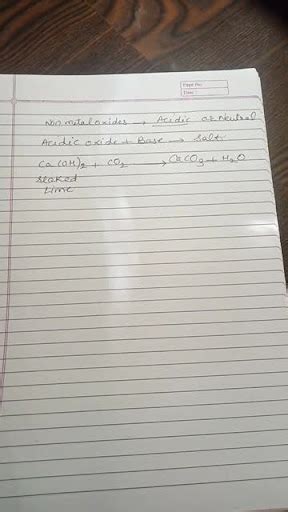 Page No.
Date
Non metal oxides → Acidic or Neutral
Acidic oxide + Base → Salt +
Ca(OH)₂ + CO₂ → CaCO₃ + H₂O
Slaked
Lime